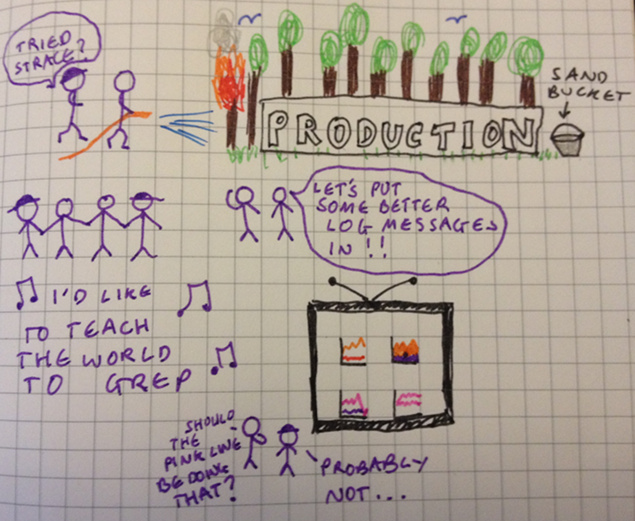 TRIED
STRACE?
SAND
BUCKET
PRODUCTION
LET'S PUT
SOME BETTER
LOG MESSAGES
IN !!
I'D LIKE
TO TEACH
THE WORLD
TO GREP
SHOULD
THE
PINK LINE
BE DOING
THAT?
PROBABLY
NOT...